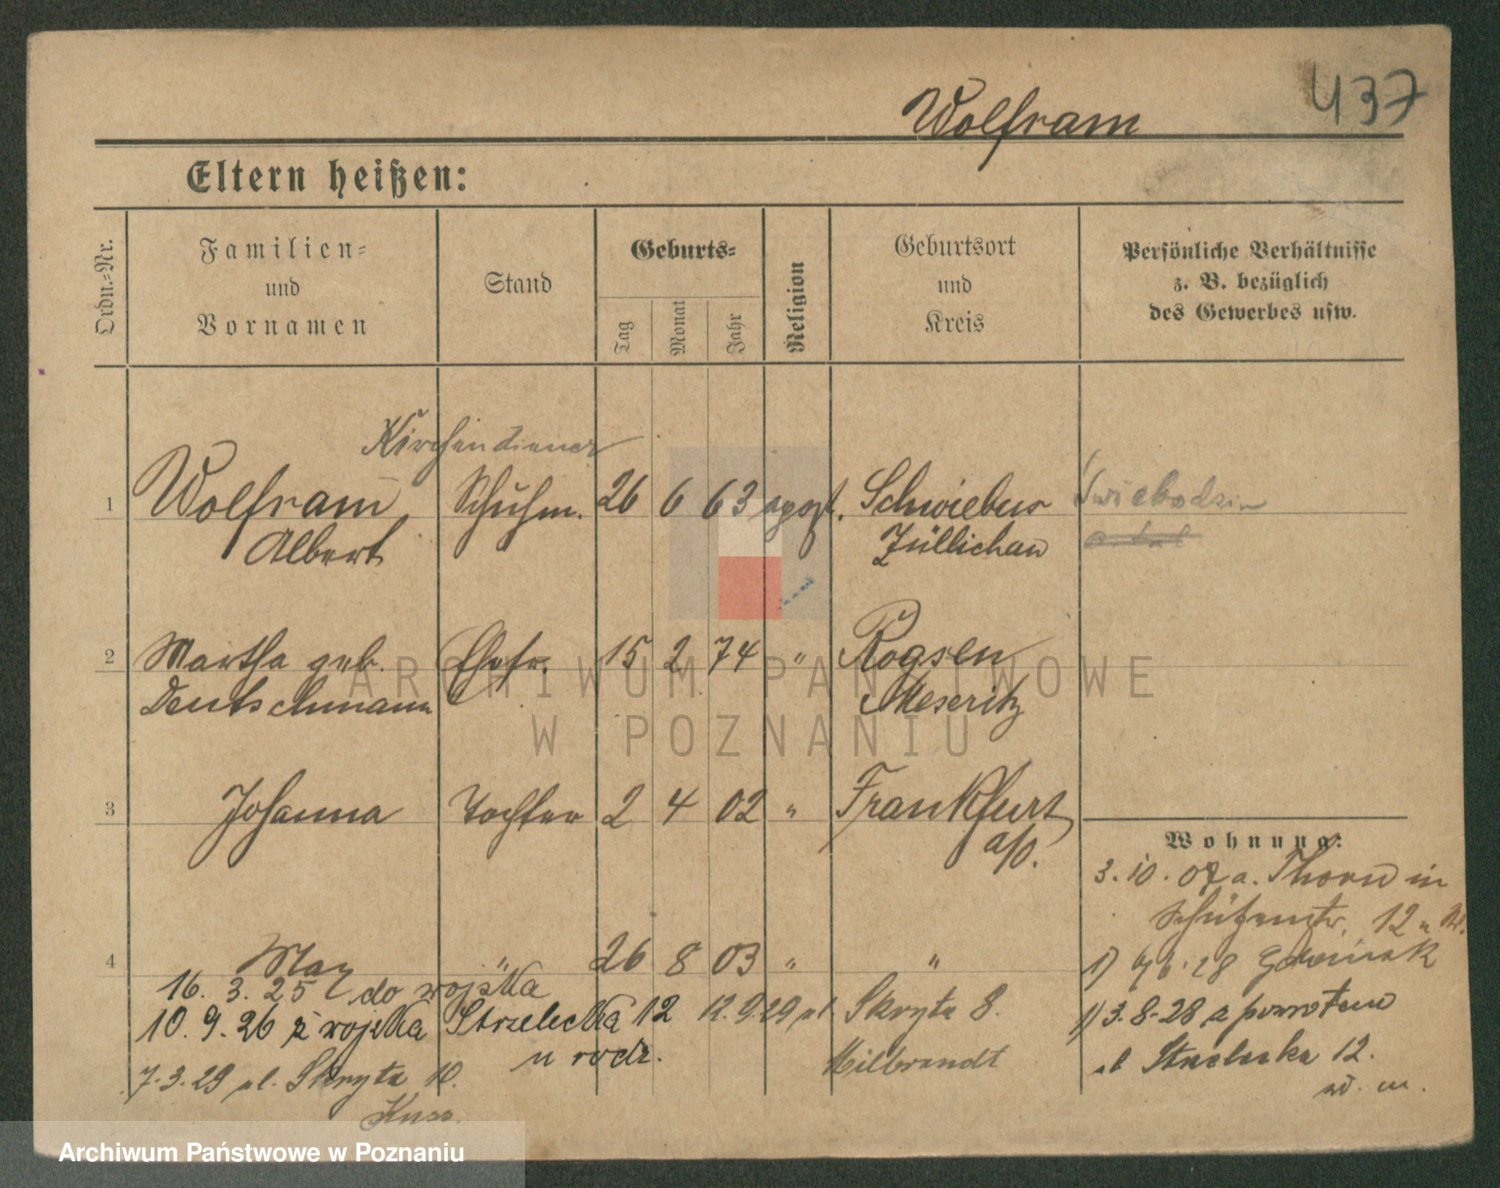 437
Wolfram
Eltern heißen:
Ordn.-Nr.
Familien-
und
Vornamen
Stand
Geburts-
Tag
Monat
Jahr
Religion
Geburtsort
und
Kreis
Persönliche Verhältnisse
z. B. bezüglich
des Gewerbes usw.
Kirchendiener
1 Wolfram Schuhm. 26 6 63 Schwiebus Świebodzin
Albert Züllichau
2 Martha geb. Ehefr. 15 2 74 " Rogsen
Deutschmann Meseritz
3 Johanna Tochter 2 4 02 " Frankfurt
a/O.
Wohnung:
3.10.07 a. Thorn in
Schützenstr. 12
4 Max " 26 8 03 " "
16. 3. 25 do wojska
1)
10. 9. 26 z wojska Strzelecka 12 12.9.29 ul. Skryta 8.
u rodz.
1) 3.8.28 z powrotem
ul. Strzelecka 12.
7.3.29 ul. Skryta 10.
Milbrandt
ARCHIWUM PAŃSTWOWE
W POZNANIU
Archiwum Państwowe w Poznaniu